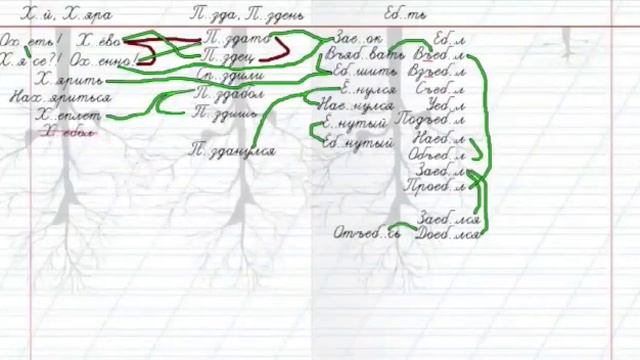 Х..й, Х..яра
П..зда, П..здень
Еб..ть
Ох..еть! Х..ёво
Х..я се?! Ох..енно!
Х..ярить
Нах..яриться
Х..еплет
Х..ебол
П..здато
П..здец
Сп..здили
П..здабол
П..здишь
П..зданулся
Зае..ок
Въяб..вать
Еб..шить
Ё..нулся
Нае..нулся
Ё..нутый
Еб..нутый
Отъеб..сь
Еб..л
Въеб..л
Взъеб..л
Съеб..л
Уеб..л
Подъеб..л
Наеб..л
Объеб..л
Заеб..л
Проеб..л
Заеб..лся
Доеб..лся